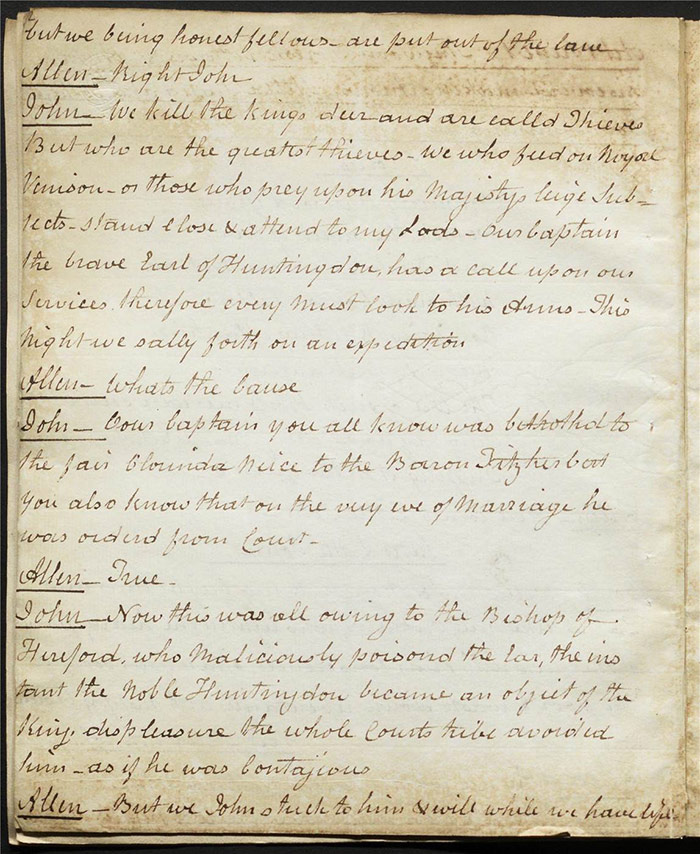 but we being honest fellows - are put out of the law
Allen - Right John
John - We kill the Kings deer and are calld Thieves
But who are the greatest thieves - we who feed on Royal
Venison - or those who prey upon his Majestys leige Sub=
jects - stand close & attend to my Lads - Our Captain
the brave Earl of Huntingdon, has a call upon our
Services therefore every must look to his Arms - This
Night we sally forth on an expedition
Allen - Whats the Cause
John - Our Captain you all know was bethothd to
the fair Clorinda Neice to the Baron Fitzherbert
You also know that on the very eve of Marriage he
was orderd from Court -
Allen - True -
John - Now this was all owing to the Bishop of
Hereford, who Maliciously poisond the Ear, the ins
tant the Noble Huntingdon became an object of the
Kings displeasure the whole Courts tribe avoided
him - as if he was Contagious
Allen - But we John stuck to him & will while we have life